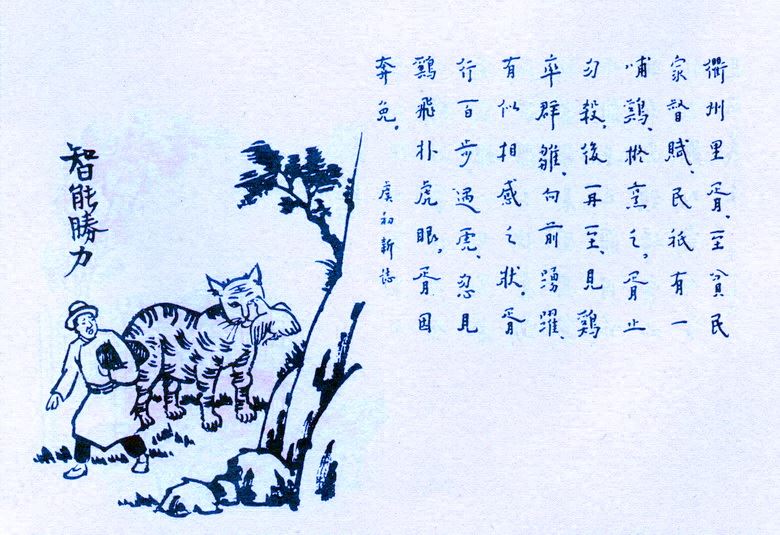 衢州里胥、至貧民
家督賦、民祇有一
哺鷄、擬烹之。胥止
勿殺。後再至、見鷄
率群雛、向前踴躍、
有似相感之狀。胥
行百步遇虎、忽見
鷄飛扑虎眼。胥因
奔免。
虞初新誌
智能勝力